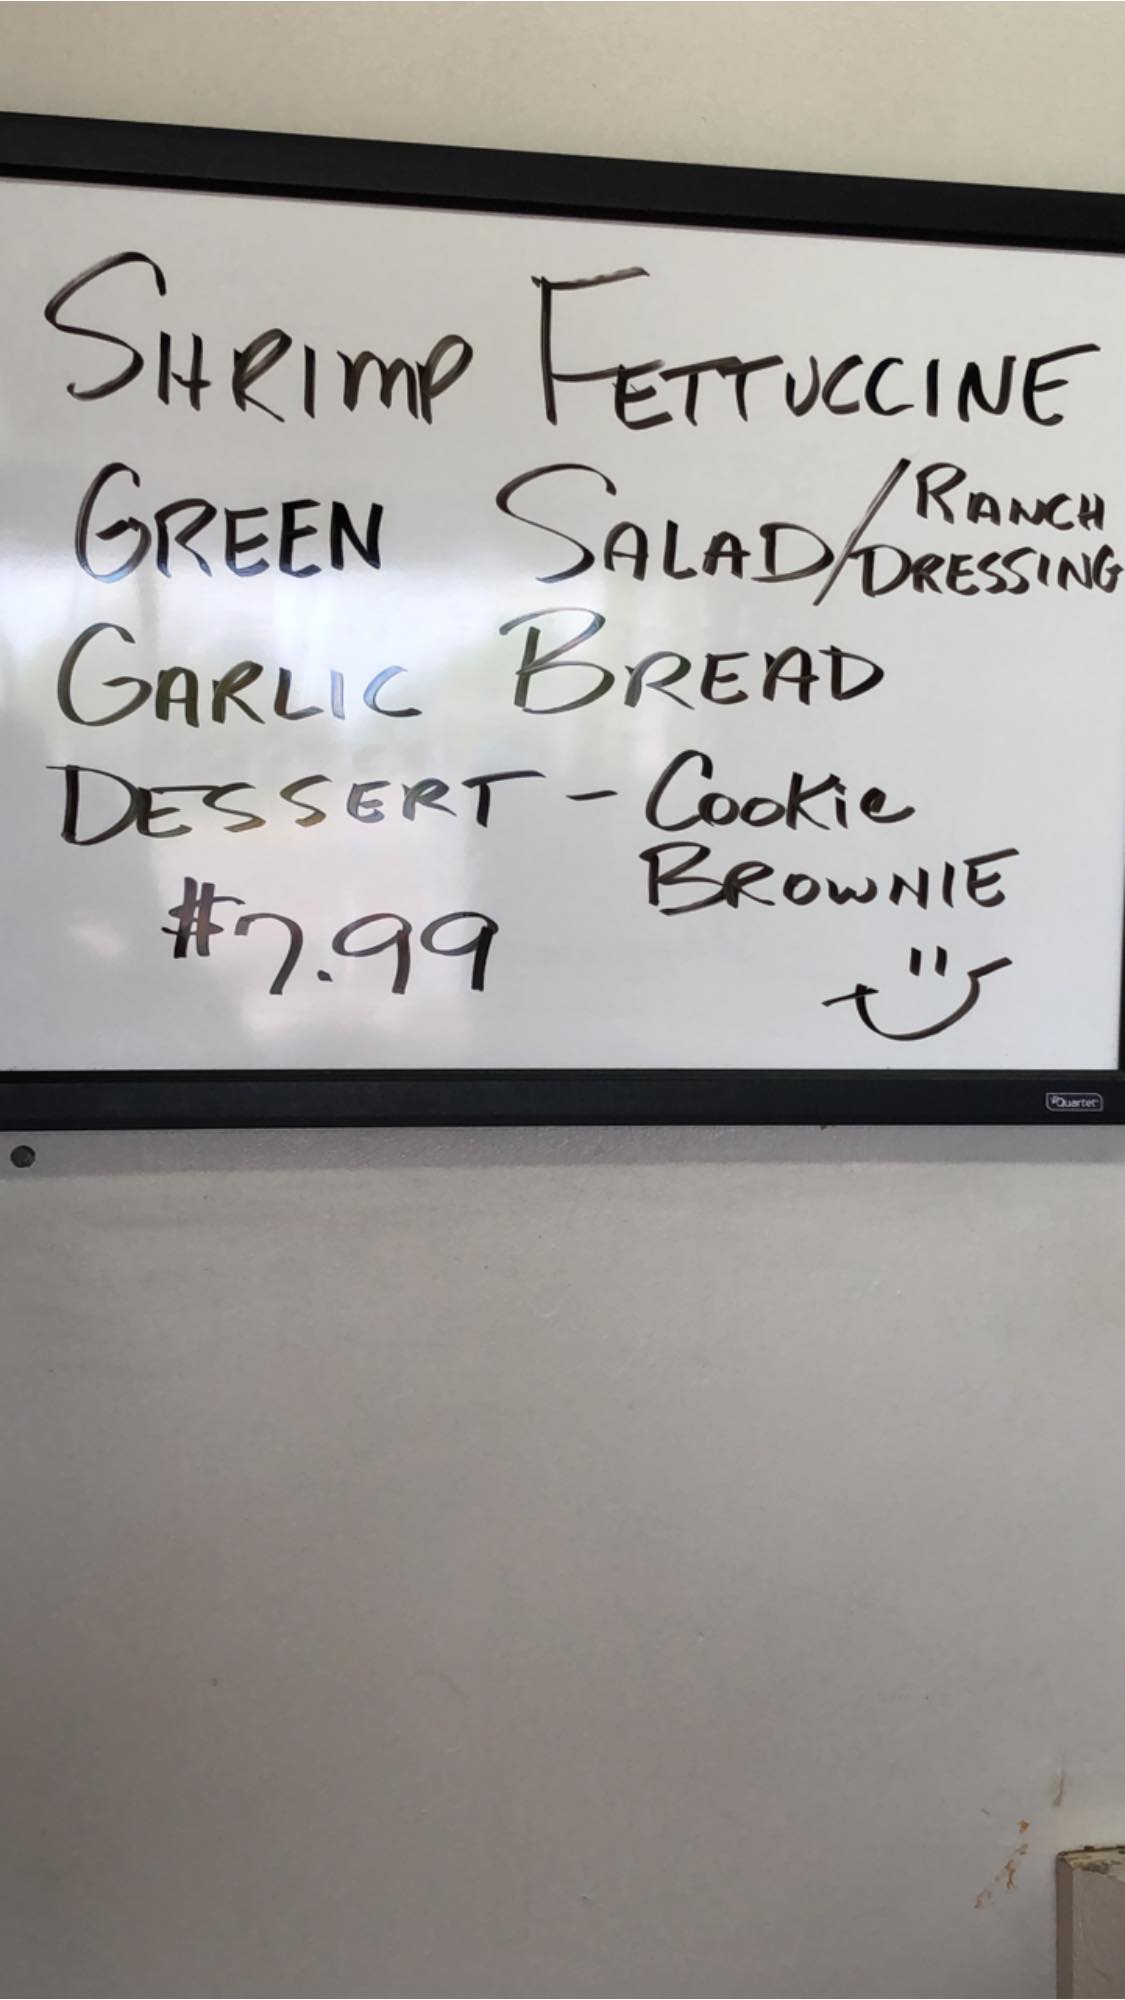 SHRIMP FETTUCCINE
GREEN SALAD/RANCH DRESSING
GARLIC BREAD
DESSERT - COOKIE
BROWNIE
#7.99
Quartet